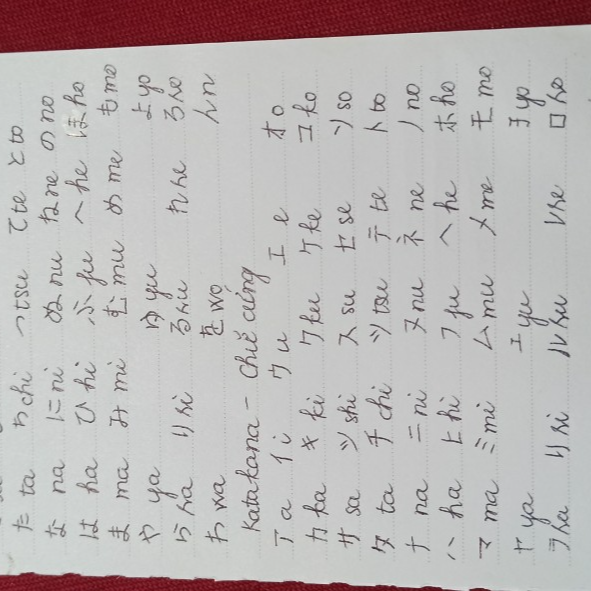 た ta ち chi つ tsu て te と to
な na に ni ぬ nu ね ne の no
は ha ひ hi ふ fu へ he ほ ho
ま ma み mi む mu め me も mo
や ya ゆ yu よ yo
ら ra り ri る ru れ re ろ ro
わ wa を wo ん n
Katakana - chữ cứng
ア a イ i ウ u エ e オ o
カ ka キ ki ク ku ケ ke コ ko
サ sa シ shi ス su セ se ソ so
タ ta チ chi ツ tsu テ te ト to
ナ na ニ ni ヌ nu ネ ne ノ no
ハ ha ヒ hi フ fu ヘ he ホ ho
マ ma ミ mi ム mu メ me モ mo
ヤ ya ユ yu ヨ yo
ラ ra リ ri ル ru レ re ロ ro